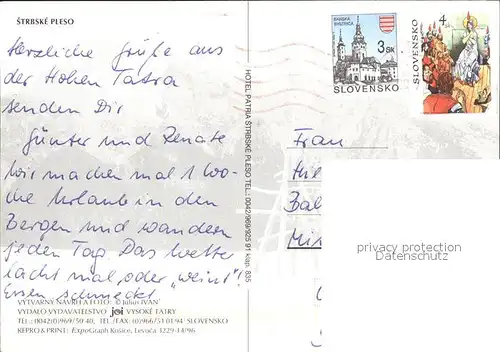 ŠTRBSKÉ PLESO
Herzliche Grüße aus
der Hohen Tatra
senden Dir
Günter und Renate
Wir machen mal 1 Wo-
che Urlaub in den
Bergen und wandern
jeden Tag. Das Wetter
lacht mal, oder „weint"!
Essen schmeckt
VÝTVARNÝ NÁVRH A FOTO: © Július IVAN
VYDALO VYDAVATEĽSTVO joi VYSOKÉ TATRY
TEL.: 0042(0)969/50 40, TEL./FAX: (0)966/51 01 94 SLOVENSKO
REPRO & PRINT: ExpoGraph Košice, Levoča 1229-14/96
HOTEL PATRIA ŠTRBSKÉ PLESO TEL.: 0042/969/925 91 klap. 835
BANSKÁ BYSTRICA
3 SK
SLOVENSKO
4
SLOVENSKO
Frau
privacy protection
Datenschutz